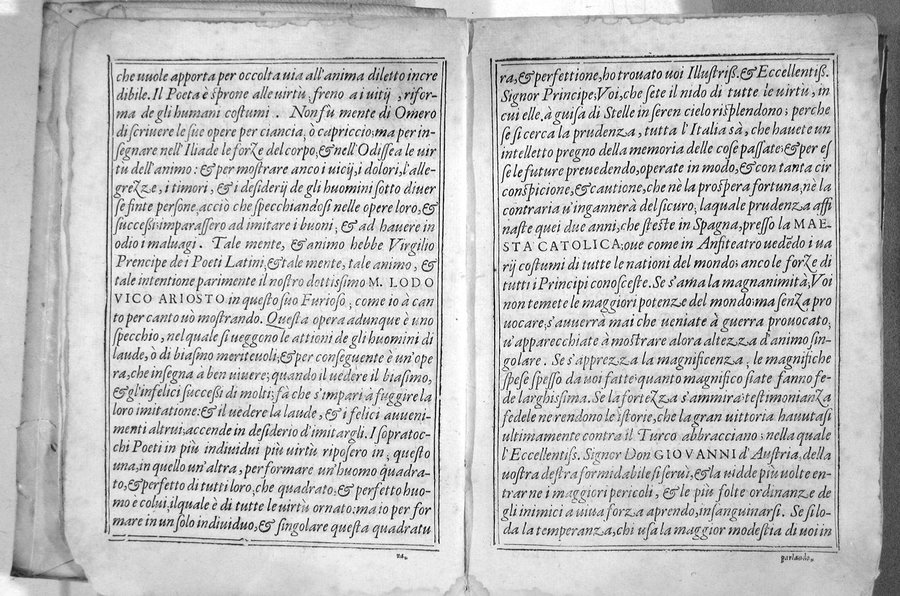 che uuole apporta per occolta uia all'anima diletto incre
dibile. Il Poeta è sprone alle uirtù, freno a i uitij, rifor-
ma de gli humani costumi. Non fù mente di Omero
di scriuere le sue opere per ciancia, ò capriccio; ma per in-
segnare nell'Iliade le forze del corpo, & nell'Odissea le uir
tù dell'animo: & per mostrare anco i uicij, i dolori, l'alle-
grezze, i timori, & i desiderij de gli huomini sotto diuer
se finte persone, acciò che specchiandosi nelle opere loro, &
successi; imparassero ad imitare i buoni, & ad hauere in
odio i maluagi. Tale mente, & animo hebbe Virgilio
Prencipe de i Poeti Latini, & tale mente, tale animo, &
tale intentione parimente il nostro dottissimo M. LODO
VICO ARIOSTO in questo suo Furioso, come io à can
to per canto uò mostrando. Questa opera adunque è uno
specchio, nel quale si ueggono le attioni de gli huomini di
laude, ò di biasmo meriteuoli; & per conseguente è un'ope
ra, che insegna à ben uiuere; quando il uedere il biasimo,
& gl'infelici successi di molti; fà che s'impari à fuggire la
loro imitatione: & il uedere la laude, & i felici auueni-
menti altrui; accende in desiderio d'imitargli. I sopratoc-
chi Poeti in più indiuidui più uirtù riposero in, questo
una, in quello un'altra, per formare un'huomo quadra-
to, & perfetto di tutti loro, che quadrato, & perfetto huo-
mo è colui, il quale è di tutte le uirtù ornato: ma io per for
mare in un solo indiuiduo, & singolare questa quadratu
ra,
ra, & perfettione, ho trouato uoi Illustriss. & Eccellentiss.
Signor Principe; Voi, che sete il nido di tutte le uirtù, in
cui elle, à guisa di Stelle in seren cielo risplendono; perche
se si cerca la prudenza, tutta l'Italia sà, che hauete un
intelletto pregno della memoria delle cose passate: & per es
se le future preuedendo, operate in modo, & con tanta cir
conspicione, & cautione, che nè la prospera fortuna, nè la
contraria u'ingannerà del sicuro, laquale prudenza affi
naste quei due anni, che steste in Spagna, presso la MAE-
STA CATOLICA; oue come in Anfiteatro uedēdo i ua
rij costumi di tutte le nationi del mondo; anco le forze di
tutti i Principi conosceste. Se s'ama la magnanimità, Voi
non temete le maggiori potenze del mondo: ma senza pro
uocare, s'auuerrà mai che ueniate à guerra prouocato,
u'apparecchiate à mostrare alora altezza d'animo sin-
golare. Se s'apprezza la magnificenza, le magnifiche
spese spesso da uoi fatte: quanto magnifico siate fanno fe-
de larghissima. Se la fortezza s'ammira: testimonianza
fedele ne rendono le istorie, che la gran uittoria hauutasi
ultimamente contra il Turco abbracciano: nella quale
l'Eccellentiss. Signor Don GIOVANNI d'Austria, della
uostra destra formidabile si seruì, & la uidde più uolte en-
trar ne i maggiori pericoli, & le più folte ordinanze de
gli inimici a uiua forza aprendo, insanguinarsi. Se si lo-
da la temperanza, chi usa la maggior modestia di uoi in
parlando,